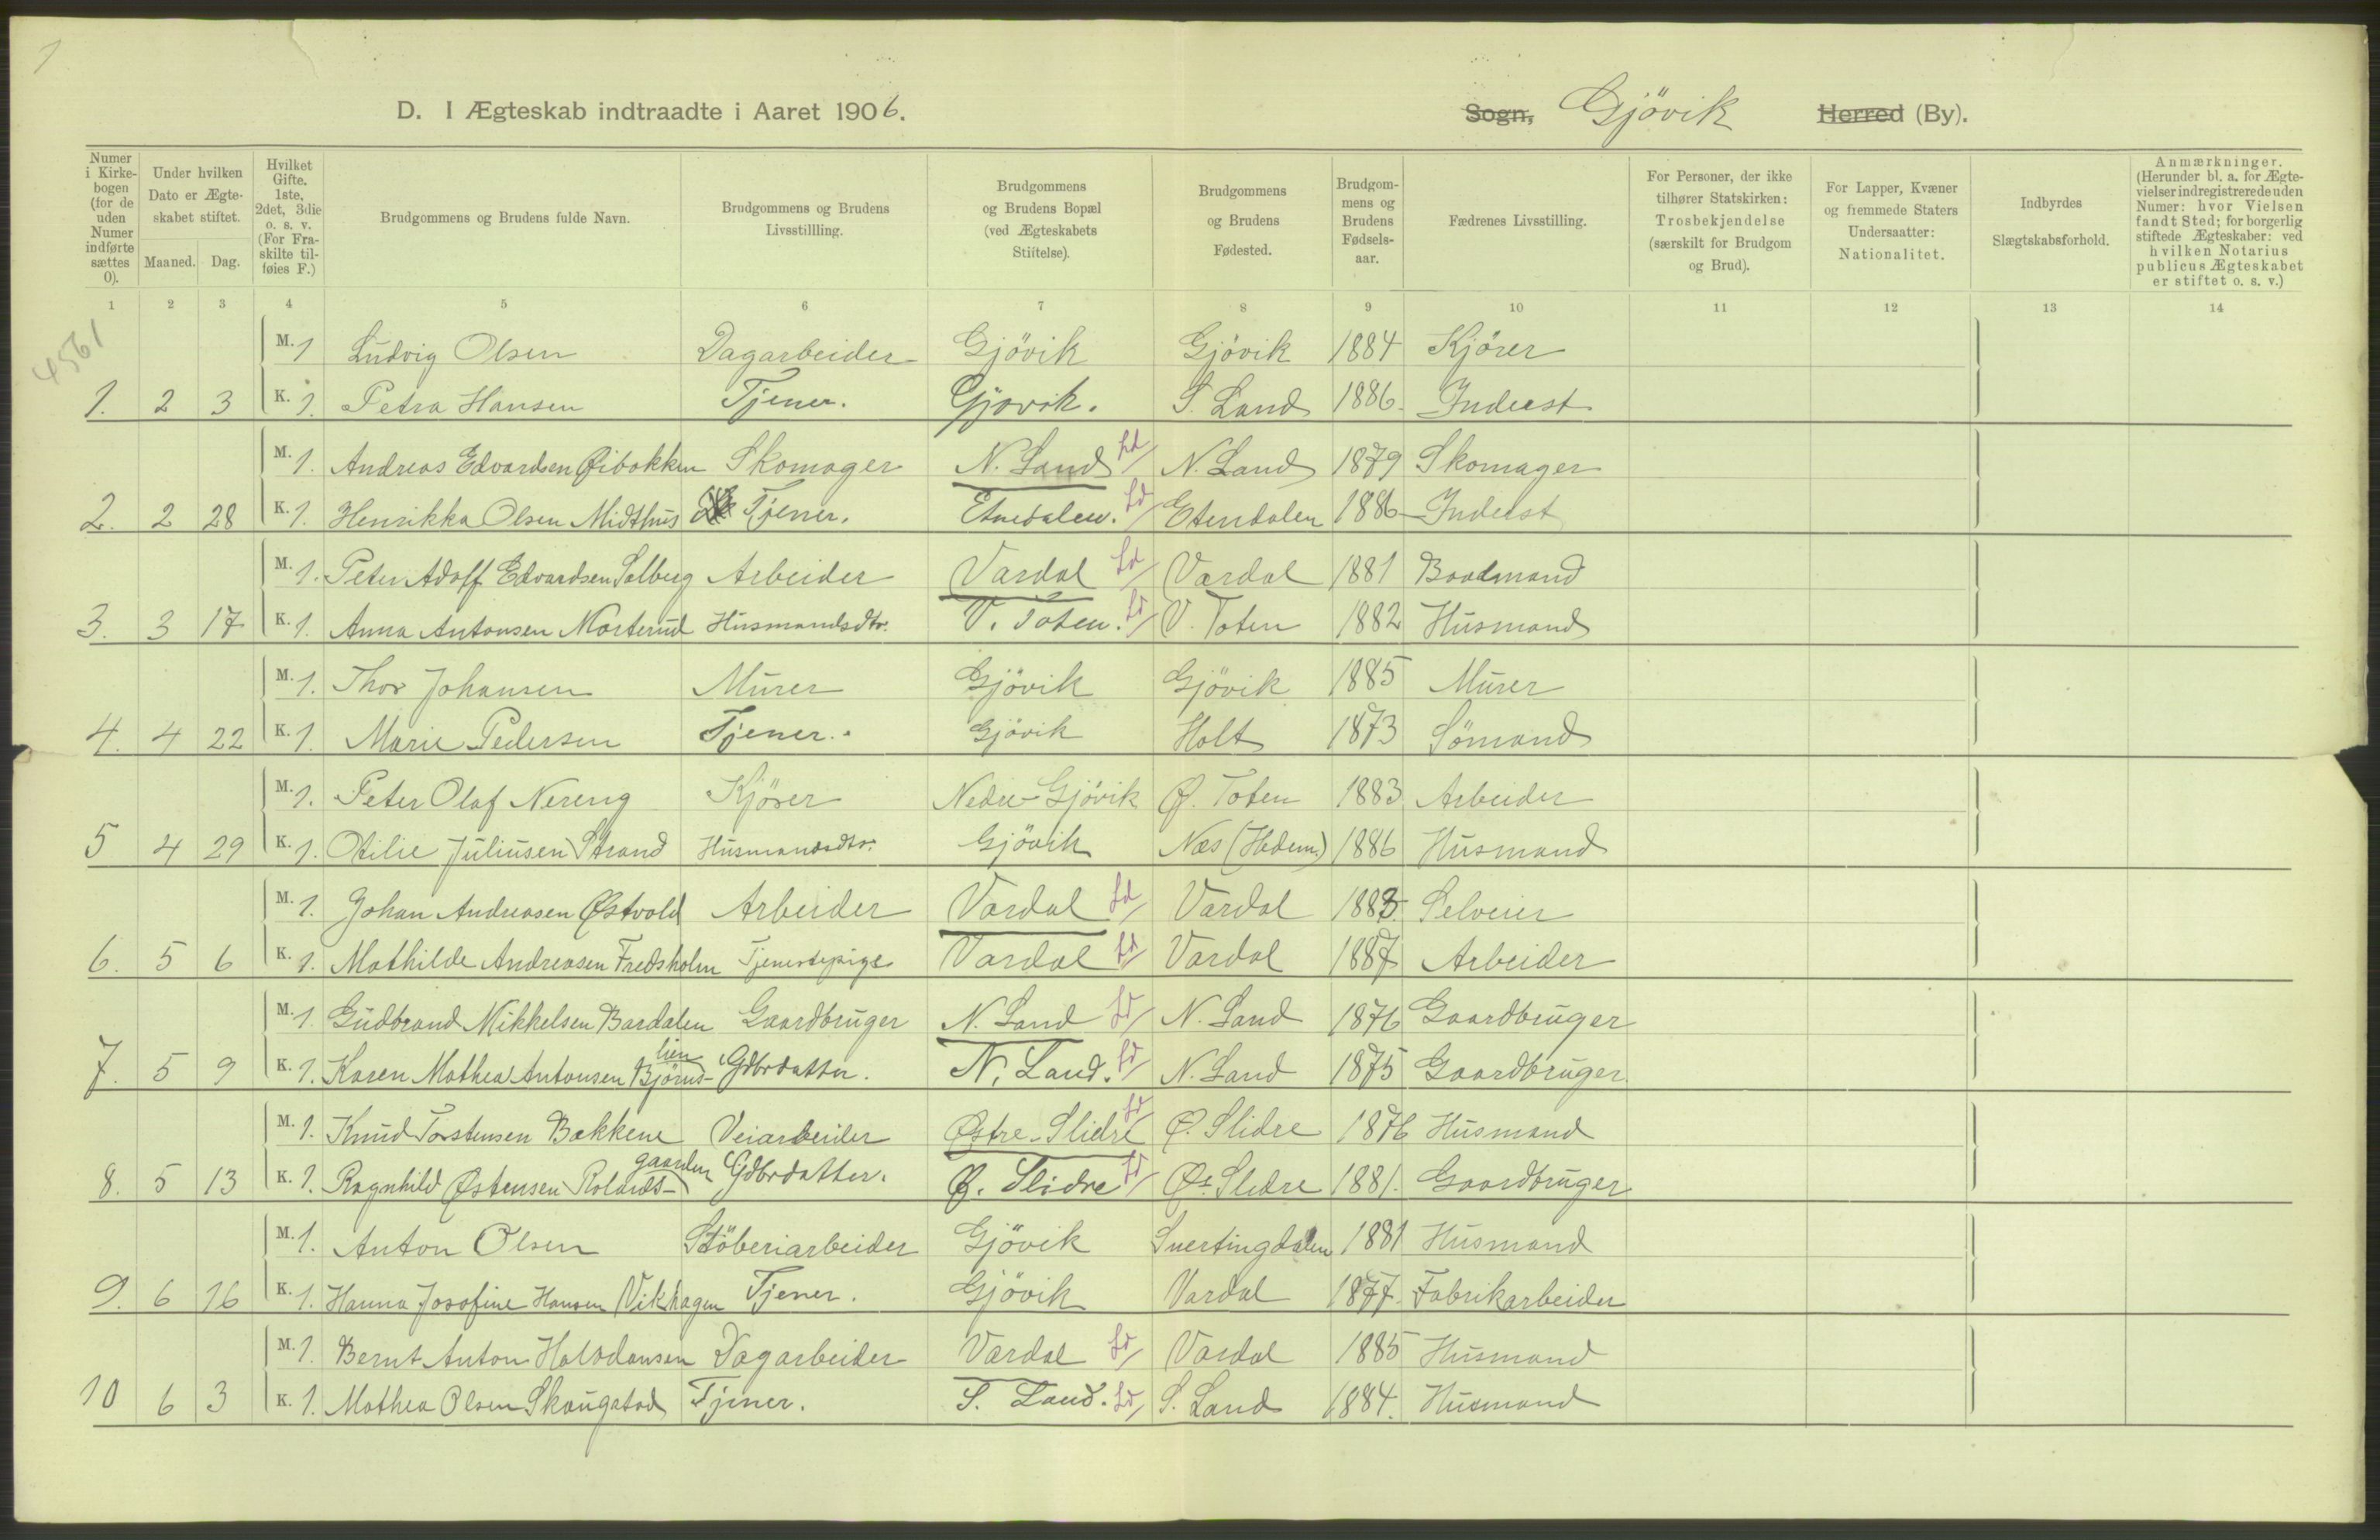 1
D. I Ægteskab indtraadte i Aaret 1906. Sogn, Gjövik Herred (By).
Numer i Kirkebogen (for de uden Numer indførte sættes 0). Under hvilken Dato er Ægteskabet stiftet. Maaned. Dag. Hvilket Gifte. 1ste, 2det, 3die o. s. v. (For Fraskilte tilføies F.) Brudgommens og Brudens fulde Navn. Brudgommens og Brudens Livsstillling. Brudgommens og Brudens Bopæl (ved Ægteskabets Stiftelse). Brudgommens og Brudens Fødested. Brudgommens og Brudens Fødselsaar. Fædrenes Livsstilling. For Personer, der ikke tilhører Statskirken: Trosbekjendelse (særskilt for Brudgom og Brud). For Lapper, Kvæner og fremmede Staters Undersaatter: Nationalitet. Indbyrdes Slægtskabsforhold. Anmærkninger. (Herunder bl. a. for Ægtevielser indregistrerede uden Numer: hvor Vielsen fandt Sted; for borgerlig stiftede Ægteskaber: ved hvilken Notarius publicus Ægteskabet er stiftet o. s. v.)
1 2 3 4 5 6 7 8 9 10 11 12 13 14
4561
M. 1 Ludvig Olsen Dagarbeider Gjövik Gjövik 1884 Kjörer
1. 2 3 K. 1. Petra Hansen Tjener. Gjövik. S. Land 1886. Inderst
M. 1. Andreas Edvardsen Øibakken Skomager N. Land Ld N. Land 1879 Skomager
2. 2 28 K. 1. Henrikka Olsen Midthus Tjener. Etnedalen. Ld Etendalen 1886 Inderst
M. 1. Peter Adolf Edvardsen Solberg Arbeider Vardal Ld Vardal 1881 Baadmand
3. 3 17 K. 1. Anna Antonsen Morterud Husmandsdtr. V. Toten. Ld V. Toten 1882 Husmand
M. 1. Thor Johansen Murer Gjövik Gjövik 1885 Murer
4. 4 22 K. 1. Marie Pedersen Tjener. Gjövik Holt 1873 Sömand
M. 1. Peter Olaf Nereng Kjörer Nedre-Gjövik Ø. Toten 1883 Arbeider
5 4 29 K. 1. Otilie Juliusen Strand Husmandsdtr. Gjövik Næs (Hedem.) 1886 Husmand
M. 1. Johan Andreasen Østvold Arbeider Vardal Ld Vardal 1883 Selveier
6. 5 6 K. 1. Mathilde Andreasen Fredsholm Tjenestepige Vardal Ld Vardal 1887 Arbeider
M. 1. Gudbrand Mikkelsen Bardalen Gaardbruger N. Land Ld N. Land 1876 Gaardbruger
7. 5 9 K. 1. Karen Mathea Antonsen Bjørnslien Gdbrdatter. N. Land. Ld N. Land 1875 Gaardbruger
M. 1. Knud Torstensen Bakkene Veiarbeider Østre-Slidre Ld Ø. Slidre 1876 Husmand
8. 5 13 K. 1. Ragnhild Østensen Rolandsgaarden Gdbrdatter. Ø. Slidre Ld Øs. Slidre 1881. Gaardbruger
M. 1. Anton Olsen Stöberiarbeider Gjövik Snertingdalen 1881 Husmand
9. 6 16 K. 1. Hanna Josofine Hansen Vikhagen Tjener. Gjövik Vardal 1877. Fabrikarbeider
M. 1. Bernt Anton Halvdansen Dagarbeider Vardal Ld Vardal 1885 Husmand
10 6 3 K. 1. Mathea Olsen Skaugstad Tjener. S. Land. Ld S. Land 1884. Husmand